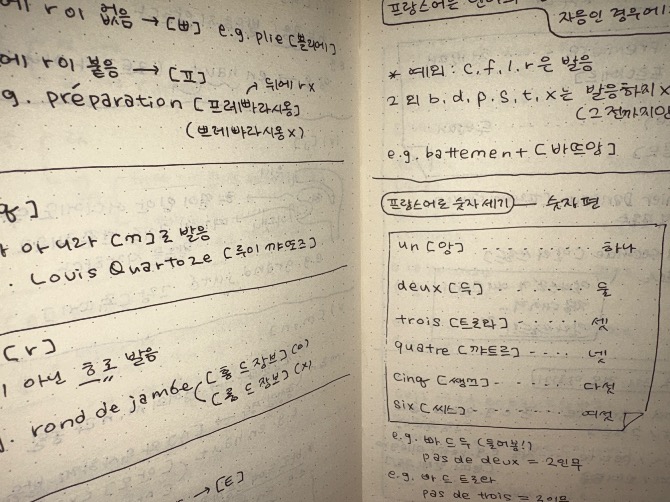 에 r이 없음 → [ㅃ] e.g. plie [쁠리에]
에 r이 붙음 → [ㅍ]
→ 뒤에 r x
g. préparation [프레빠라시옹]
(쁘레빠라시옹 x)
아니라 [ㄲ]로 발음
Louis Quatoze [루이 꺄또르즈]
[r]
아닌 ㅎ로 발음
rond de jambe ([홍 드 장브] (o)
[롱 드 장브] (x)
→ [ㅌ]
프랑스어는 단어의
자음인 경우에
* 예외 : c, f, l, r은 발음
그 외 b, d, p, s, t, x는 발음하지 x
(그 전까지만
e.g. battement [바뜨망]
프랑스어로 숫자 세기 — 숫자편
un [앙] ········ 하나
deux [두] ········ 둘
trois [트로와] ····· 셋
quatre [꺄트르] ····· 넷
cinq [쌩끄] ····· 다섯
six [씨스] ····· 여섯
e.g. 빠 드 두 (들어봄!)
pas de deux = 2인무
e.g. 빠 드 트로와
pas de trois = 3인무